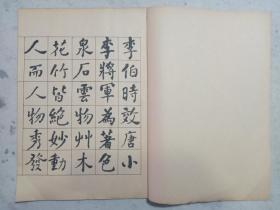 李伯時效唐小
李將軍為著色
泉石雲物艸木
花竹皆絕妙動
人而人物秀發